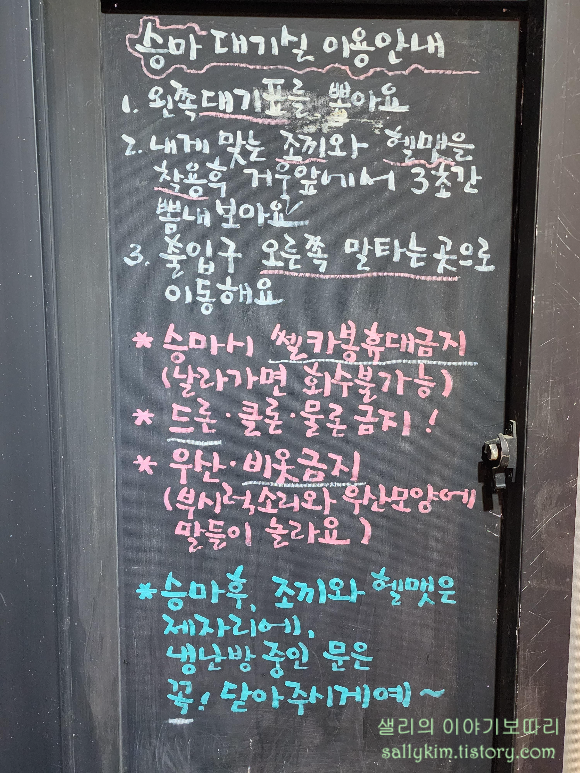 승마 대기실 이용안내
1. 왼쪽대기표를 뽑아요
2. 내게 맞는 조끼와 헬멧을
착용후 거울앞에서 3초간
뽐내보아요
3. 출입구 오른쪽 말타는곳으로
이동해요
* 승마시 쎌카봉휴대금지
(날라가면 회수불가능)
* 드론·클론·물론금지!
* 우산·비옷금지
(부시럭소리와 우산모양에
말들이 놀라요)
* 승마후, 조끼와 헬멧은
제자리에,
냉난방중인 문은
꼭! 닫아주시게예~
샐리의 이야기보따리
sallykim.tistory.com